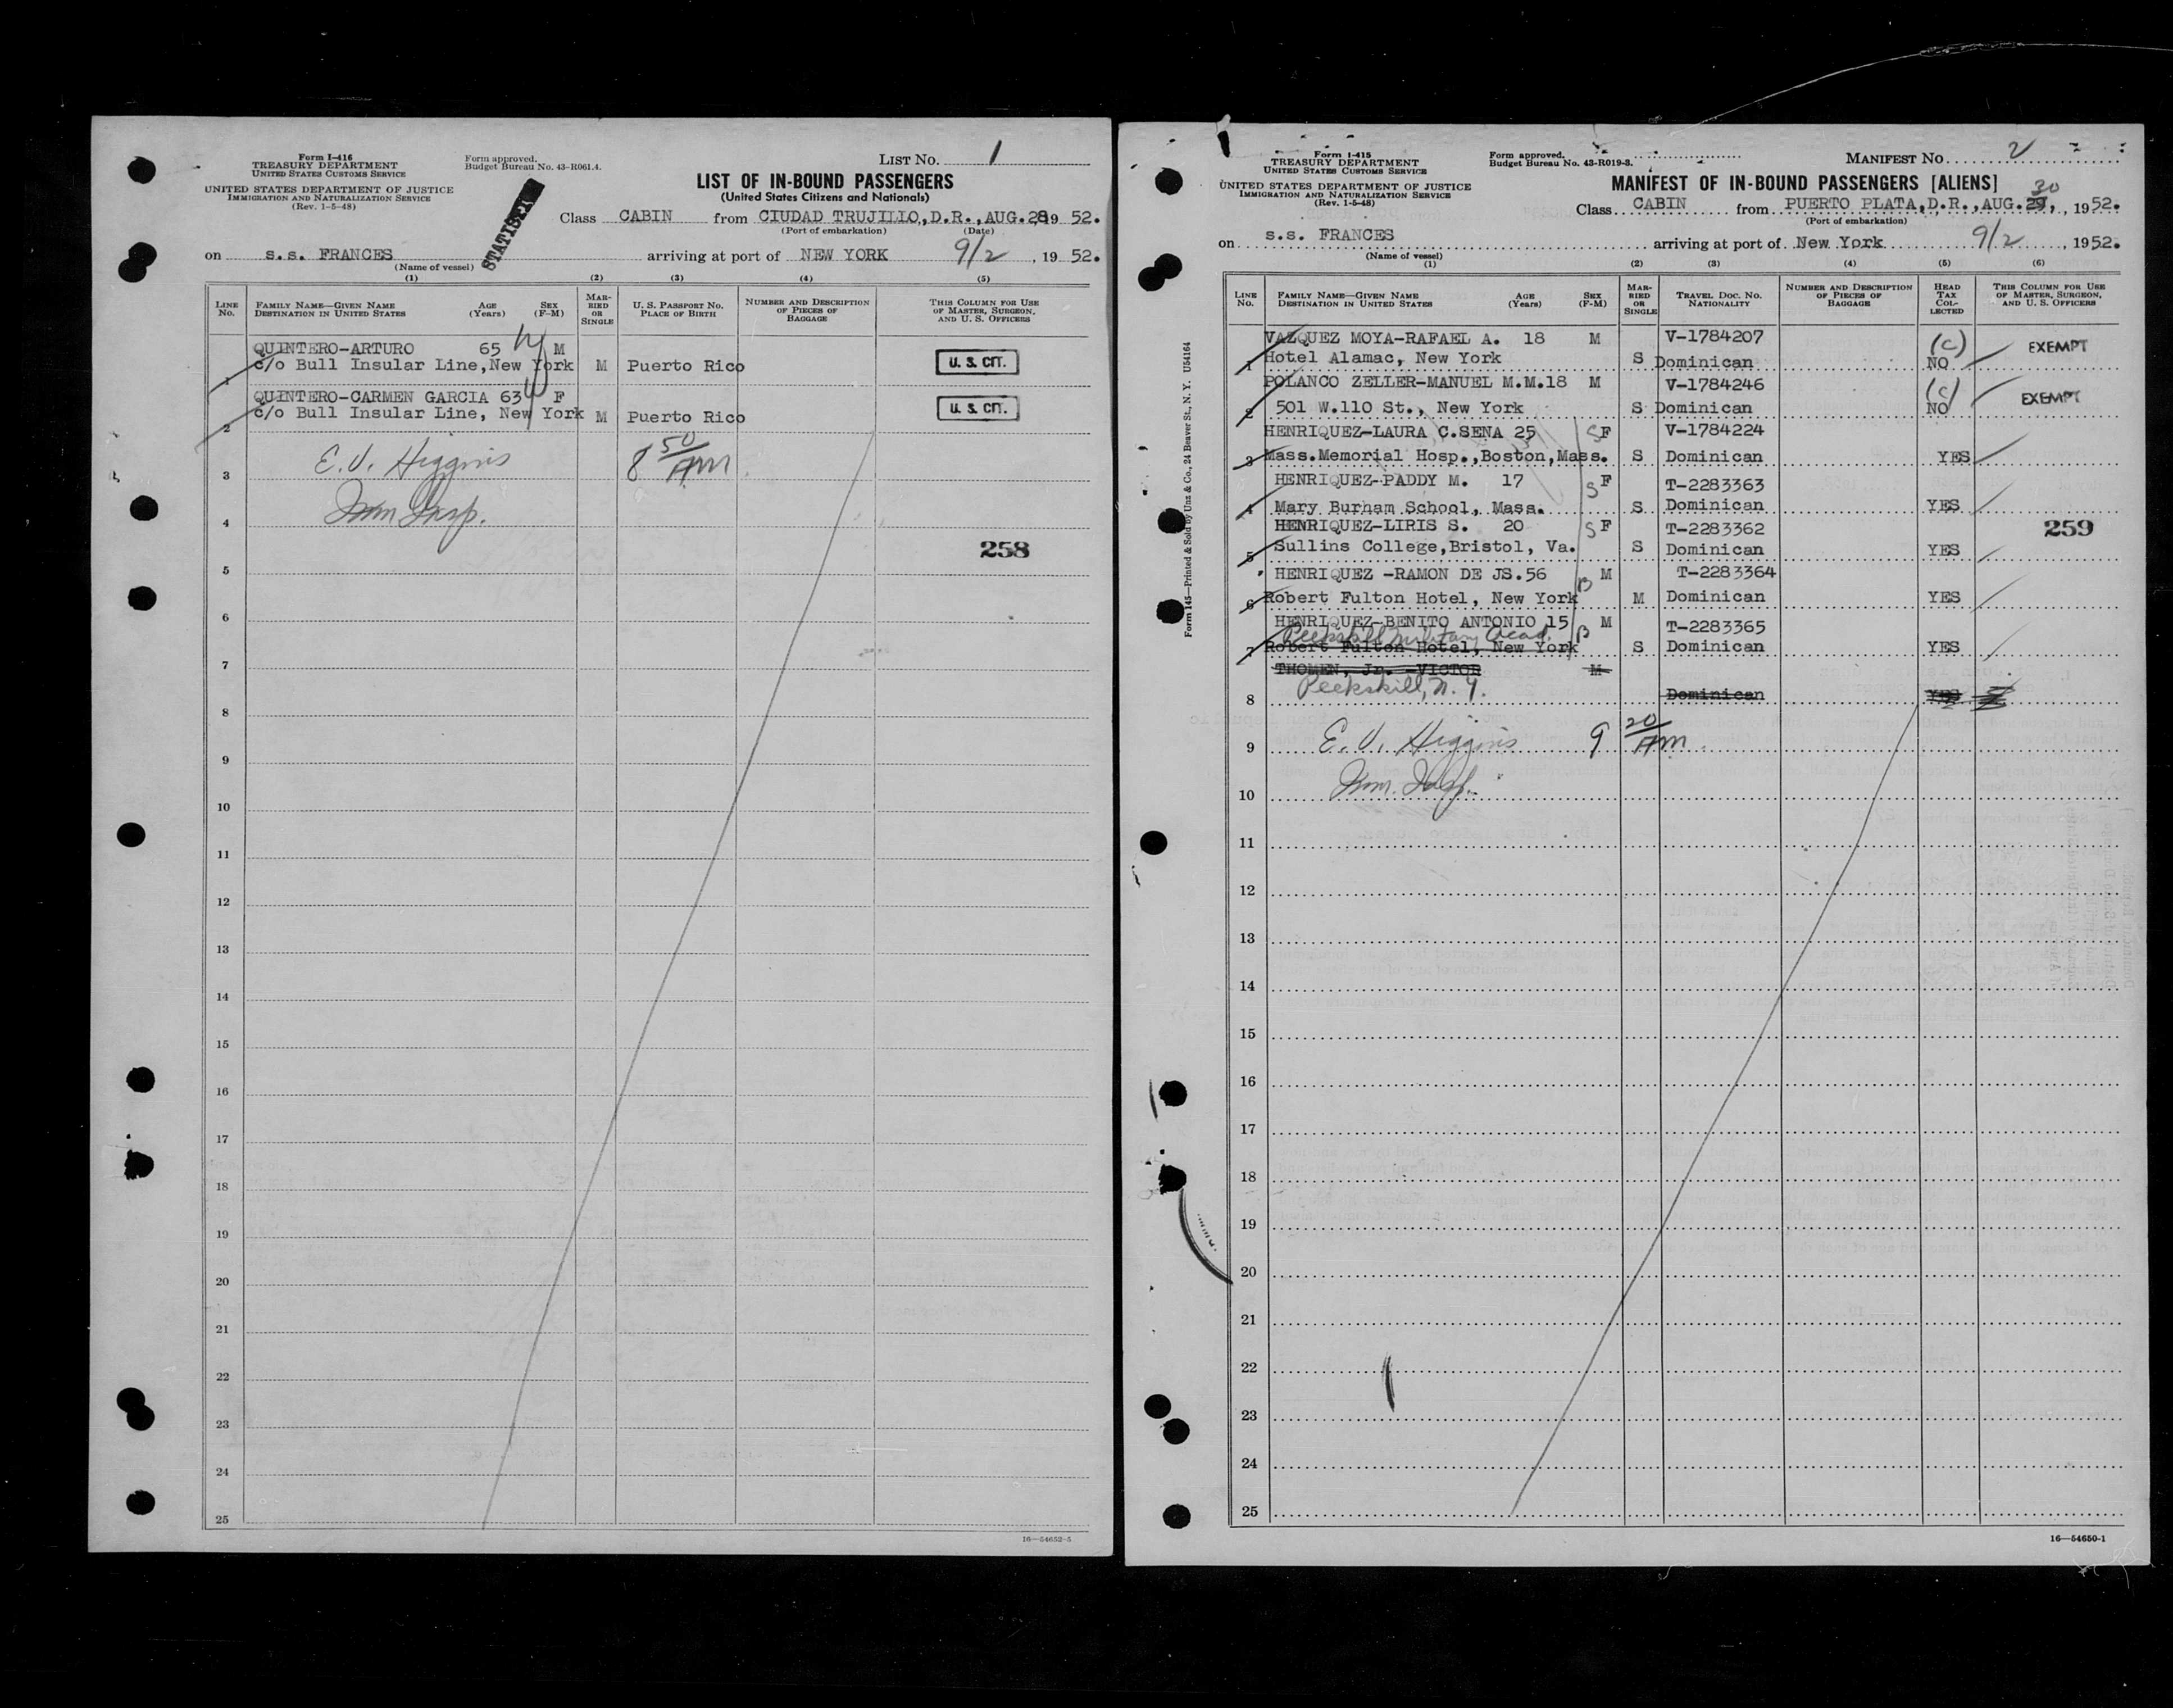 Form I-416
TREASURY DEPARTMENT
UNITED STATES CUSTOMS SERVICE
UNITED STATES DEPARTMENT OF JUSTICE
IMMIGRATION AND NATURALIZATION SERVICE
(Rev. 1-5-48)
Form approved.
Budget Bureau No. 43-R061.4.
LIST No. 1
STATISTEX
LIST OF IN-BOUND PASSENGERS
(United States Citizens and Nationals)
Class CABIN from CIUDAD TRUJILLO, D.R., AUG. 28, 19 52.
(Port of embarkation) (Date)
on s.s. FRANCES arriving at port of NEW YORK 9/2, 19 52.
(Name of vessel)
(1) (2) (3) (4) (5)
LINE No.
FAMILY NAME—GIVEN NAME AGE (Years) SEX (F-M)
DESTINATION IN UNITED STATES
MARRIED OR SINGLE
U. S. PASSPORT No. PLACE OF BIRTH
NUMBER AND DESCRIPTION OF PIECES OF BAGGAGE
THIS COLUMN FOR USE OF MASTER, SURGEON, AND U. S. OFFICERS
QUINTERO-ARTURO 65 M
1 c/o Bull Insular Line, New York M Puerto Rico U. S. CIT.
QUINTERO-CARMEN GARCIA 63 F
2 c/o Bull Insular Line, New York M Puerto Rico U. S. CIT.
3 E. V. Higgins 8 50 AM
4 Imm Insp.
258
5
6
7
8
9
10
11
12
13
14
15
16
17
18
19
20
21
22
23
24
25
16—54652-5
Form I-415
TREASURY DEPARTMENT
UNITED STATES CUSTOMS SERVICE
UNITED STATES DEPARTMENT OF JUSTICE
IMMIGRATION AND NATURALIZATION SERVICE
(Rev. 1-5-48)
Form approved.
Budget Bureau No. 43-R019-3.
MANIFEST No. 2
MANIFEST OF IN-BOUND PASSENGERS [ALIENS]
30
Class CABIN from PUERTO PLATA, D.R., AUG. 29, 1952.
(Port of embarkation)
on s.s. FRANCES arriving at port of New York 9/2, 1952.
(Name of vessel)
(1) (2) (3) (4) (5) (6)
LINE No.
FAMILY NAME—GIVEN NAME AGE (Years) SEX (F-M)
DESTINATION IN UNITED STATES
MARRIED OR SINGLE
TRAVEL DOC. No. NATIONALITY
NUMBER AND DESCRIPTION OF PIECES OF BAGGAGE
HEAD TAX COLLECTED
THIS COLUMN FOR USE OF MASTER, SURGEON, AND U. S. OFFICERS
VAZQUEZ MOYA-RAFAEL A. 18 M V-1784207 (C) EXEMPT
1 Hotel Alamac, New York S Dominican NO
POLANCO ZELLER-MANUEL M.M. 18 M V-1784246 (C) EXEMPT
2 501 W.110 St., New York S Dominican NO
HENRIQUEZ-LAURA C.SENA 25 S F V-1784224
3 Mass.Memorial Hosp.,Boston,Mass. S Dominican YES
HENRIQUEZ-PADDY M. 17 S F T-2283363
4 Mary Burham School, Mass. S Dominican YES
HENRIQUEZ-LIRIS S. 20 S F T-2283362
259
5 Sullins College,Bristol, Va. S Dominican YES
HENRIQUEZ -RAMON DE JS. 56 B M T-2283364
6 Robert Fulton Hotel, New York M Dominican YES
HENRIQUEZ-BENITO ANTONIO 15 B M T-2283365
Peekskill Military Acad.
7 Robert Fulton Hotel, New York S Dominican YES
THOMEN, Jr. -VICTOR M
Peekskill, N. Y.
8 Dominican YES
9 E. V. Higgins 9 20 AM
10 Imm. Insp.
11
12
13
14
15
16
17
18
19
20
21
22
23
24
25
Form 145—Printed & Sold by Unz & Co., 24 Beaver St., N. Y. U54164
16—54650-1